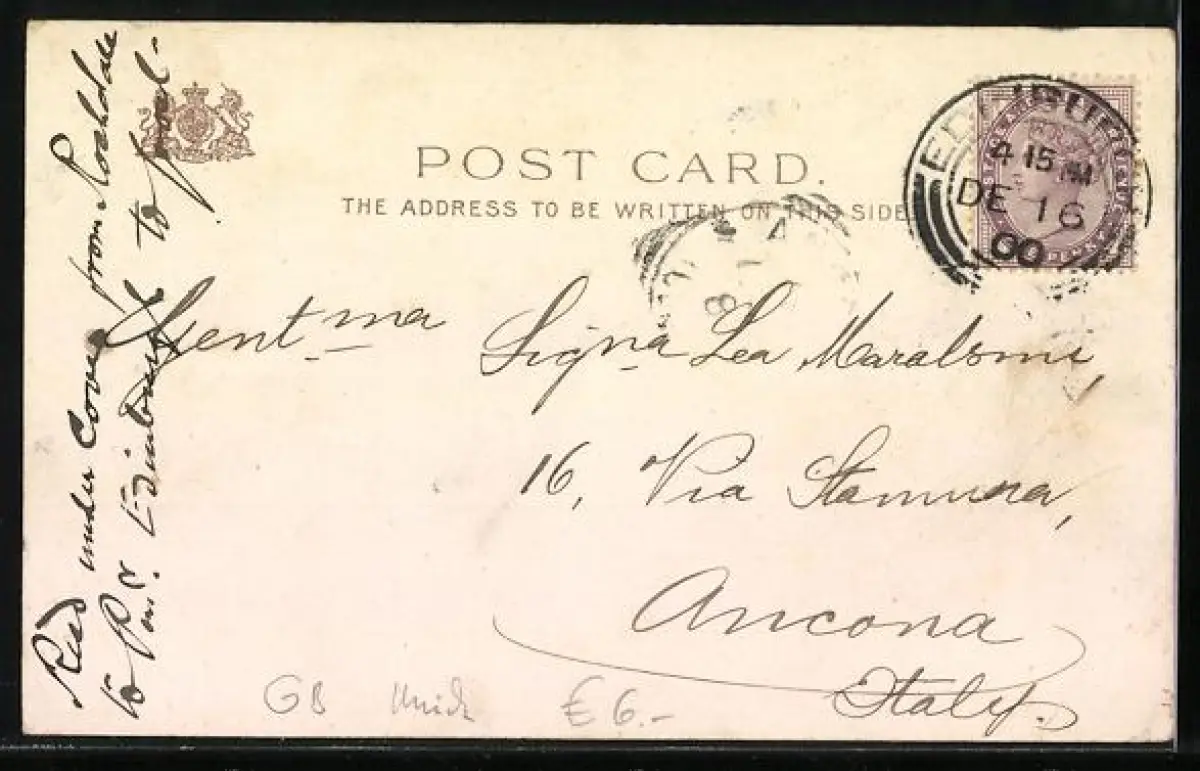 POST CARD.
THE ADDRESS TO BE WRITTEN ON THIS SIDE
4 15 PM
DE 16
00
Gent ma Signa Lea
16, Via Stamura,
Ancona
Italy.
Recd under Cover from Rochdale
to P.M. Edinburgh to post -
GB € 6.-